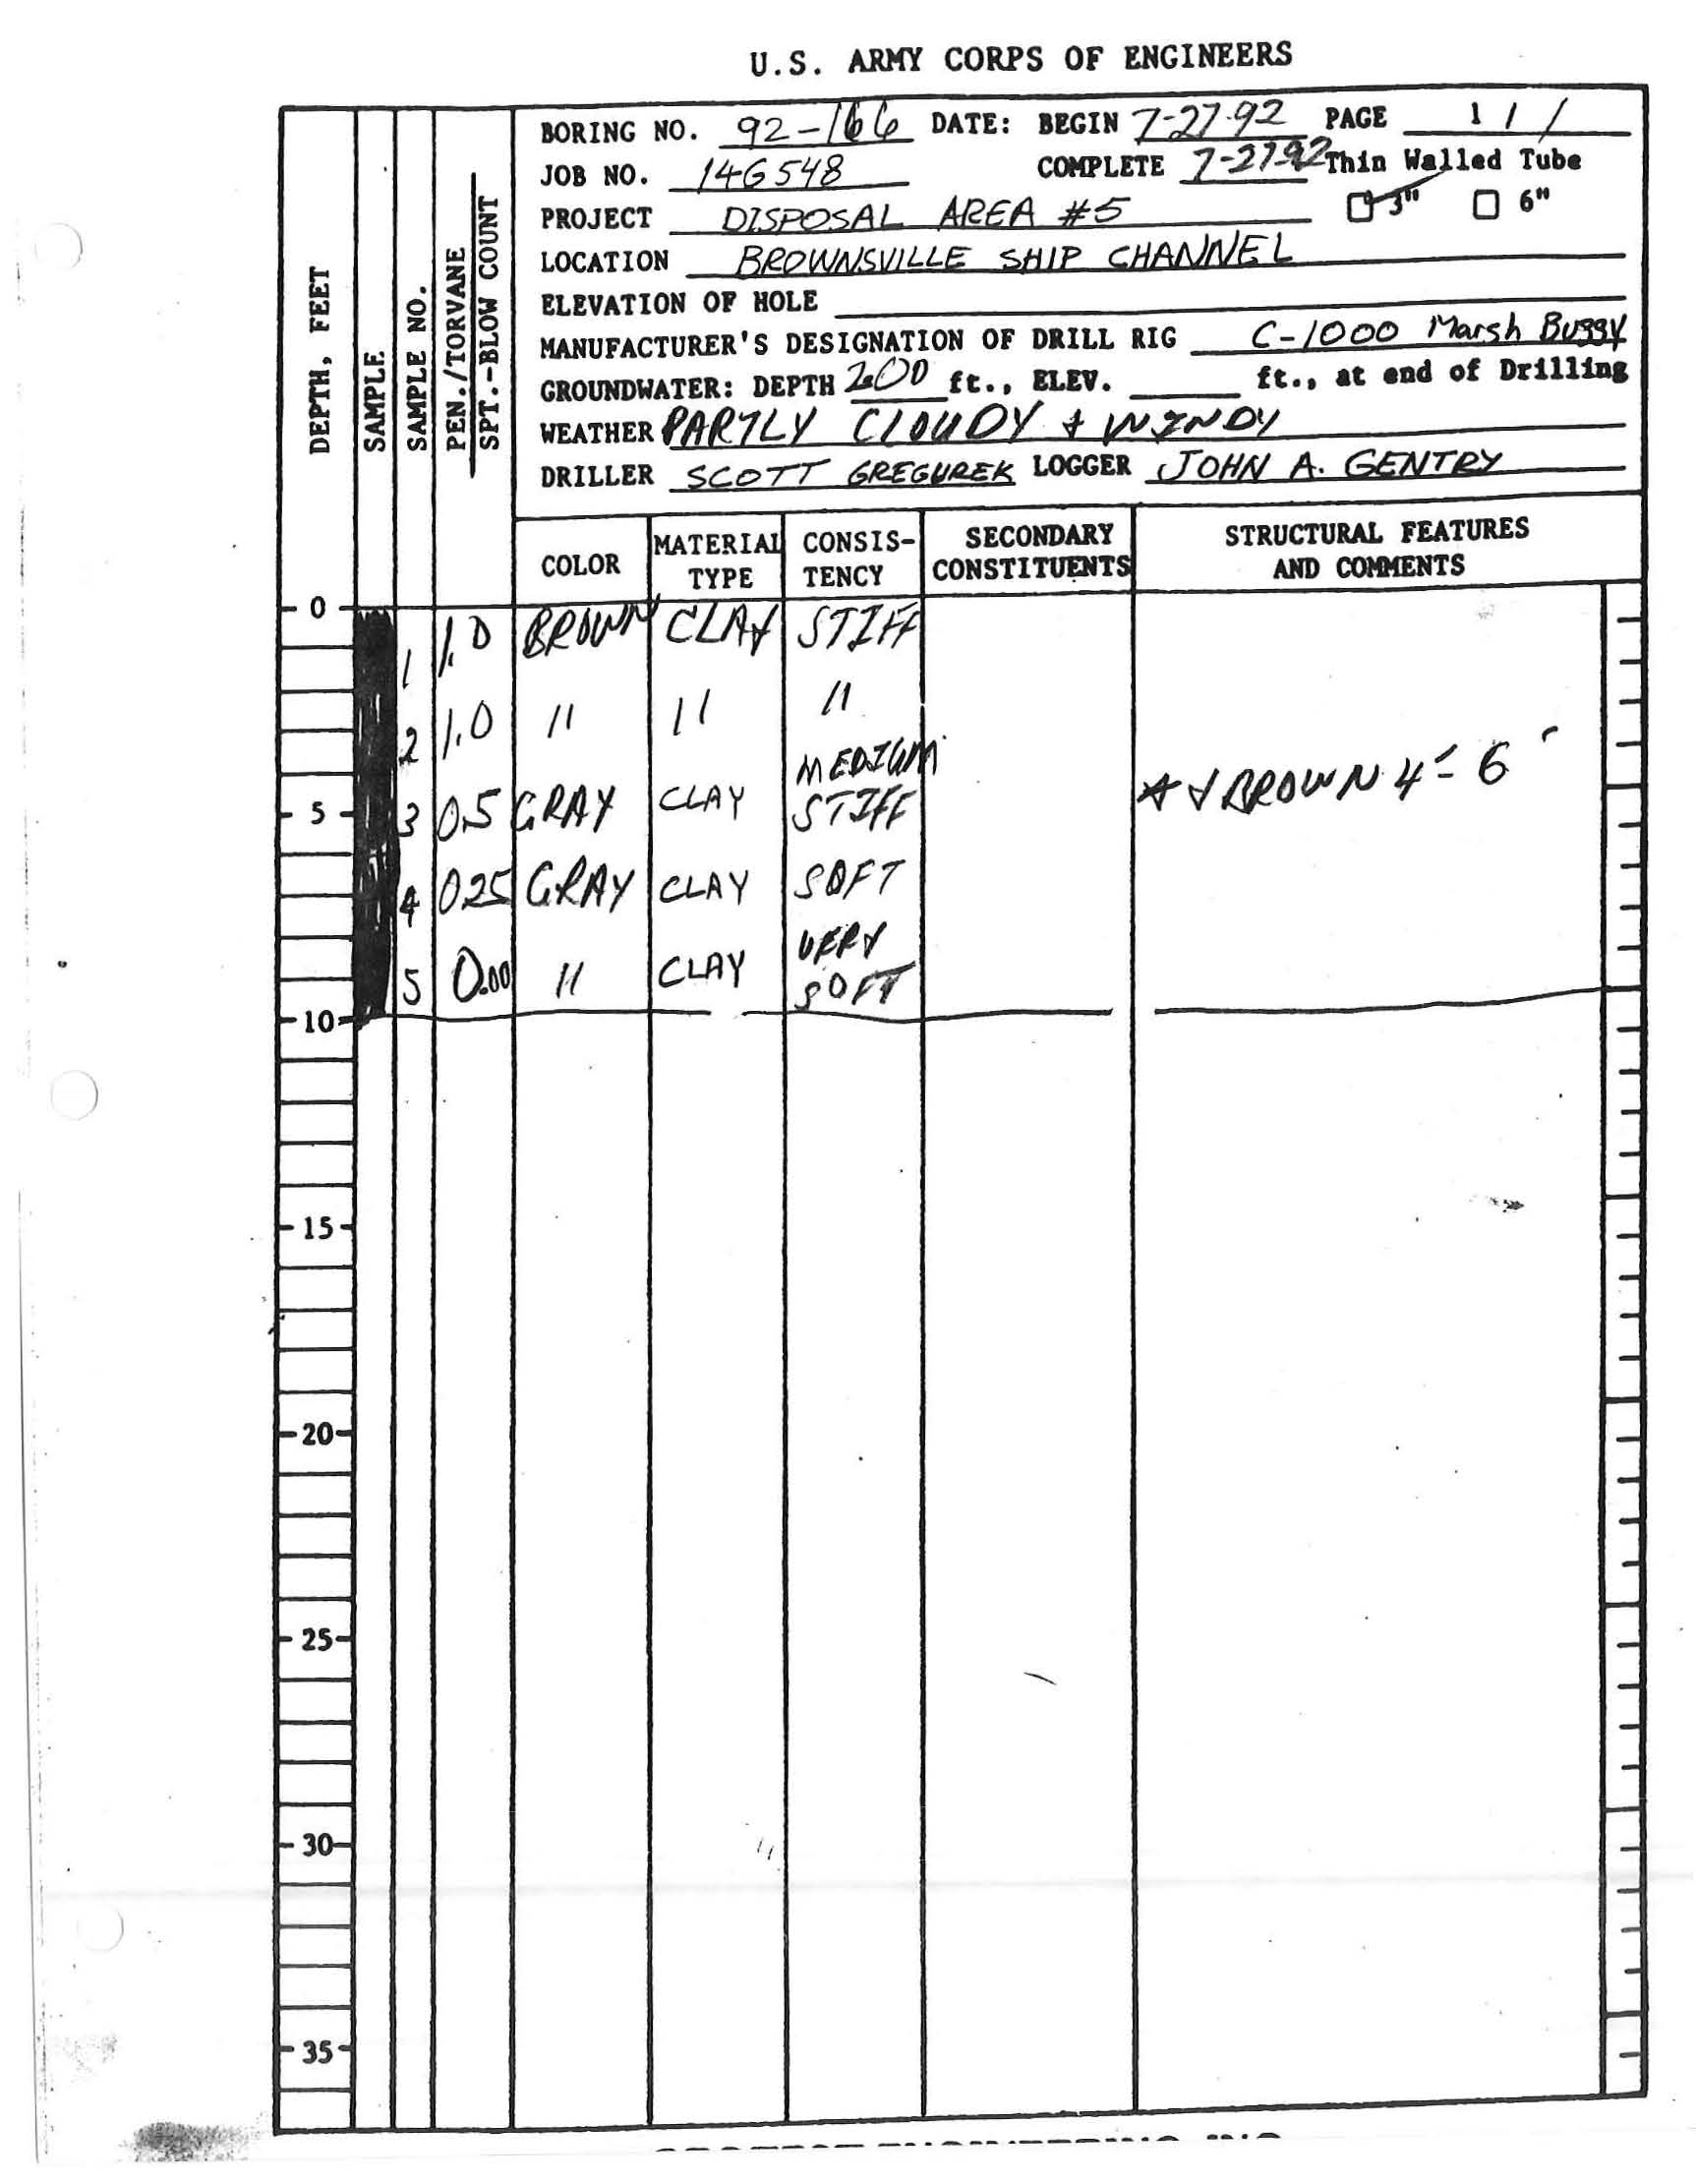 U.S. ARMY CORPS OF ENGINEERS
BORING NO. 92-166 DATE: BEGIN 7-27-92 PAGE 1 / /
JOB NO. 14G548 COMPLETE 7-27-92 Thin Walled Tube
PROJECT DISPOSAL AREA #5 3" 6"
LOCATION BROWNSVILLE SHIP CHANNEL
ELEVATION OF HOLE
MANUFACTURER'S DESIGNATION OF DRILL RIG C-1000 Marsh Buggy
GROUNDWATER: DEPTH 2.00 ft., ELEV. ft., at end of Drilling
WEATHER PARTLY CLOUDY + WINDY
DRILLER SCOTT GREGUREK LOGGER JOHN A. GENTRY
DEPTH, FEET
SAMPLE
SAMPLE NO.
PEN./TORVANE
SPT.-BLOW COUNT
COLOR MATERIAL TYPE CONSIS-TENCY SECONDARY CONSTITUENTS STRUCTURAL FEATURES AND COMMENTS
0
1 1.0 BROWN CLAY STIFF
2 1.0 " " "
5 3 0.5 GRAY CLAY MEDIUM STIFF BROWN 4'-6'
4 0.25 GRAY CLAY SOFT
5 0.00 " CLAY VERY SOFT
10
15
20
25
30
35